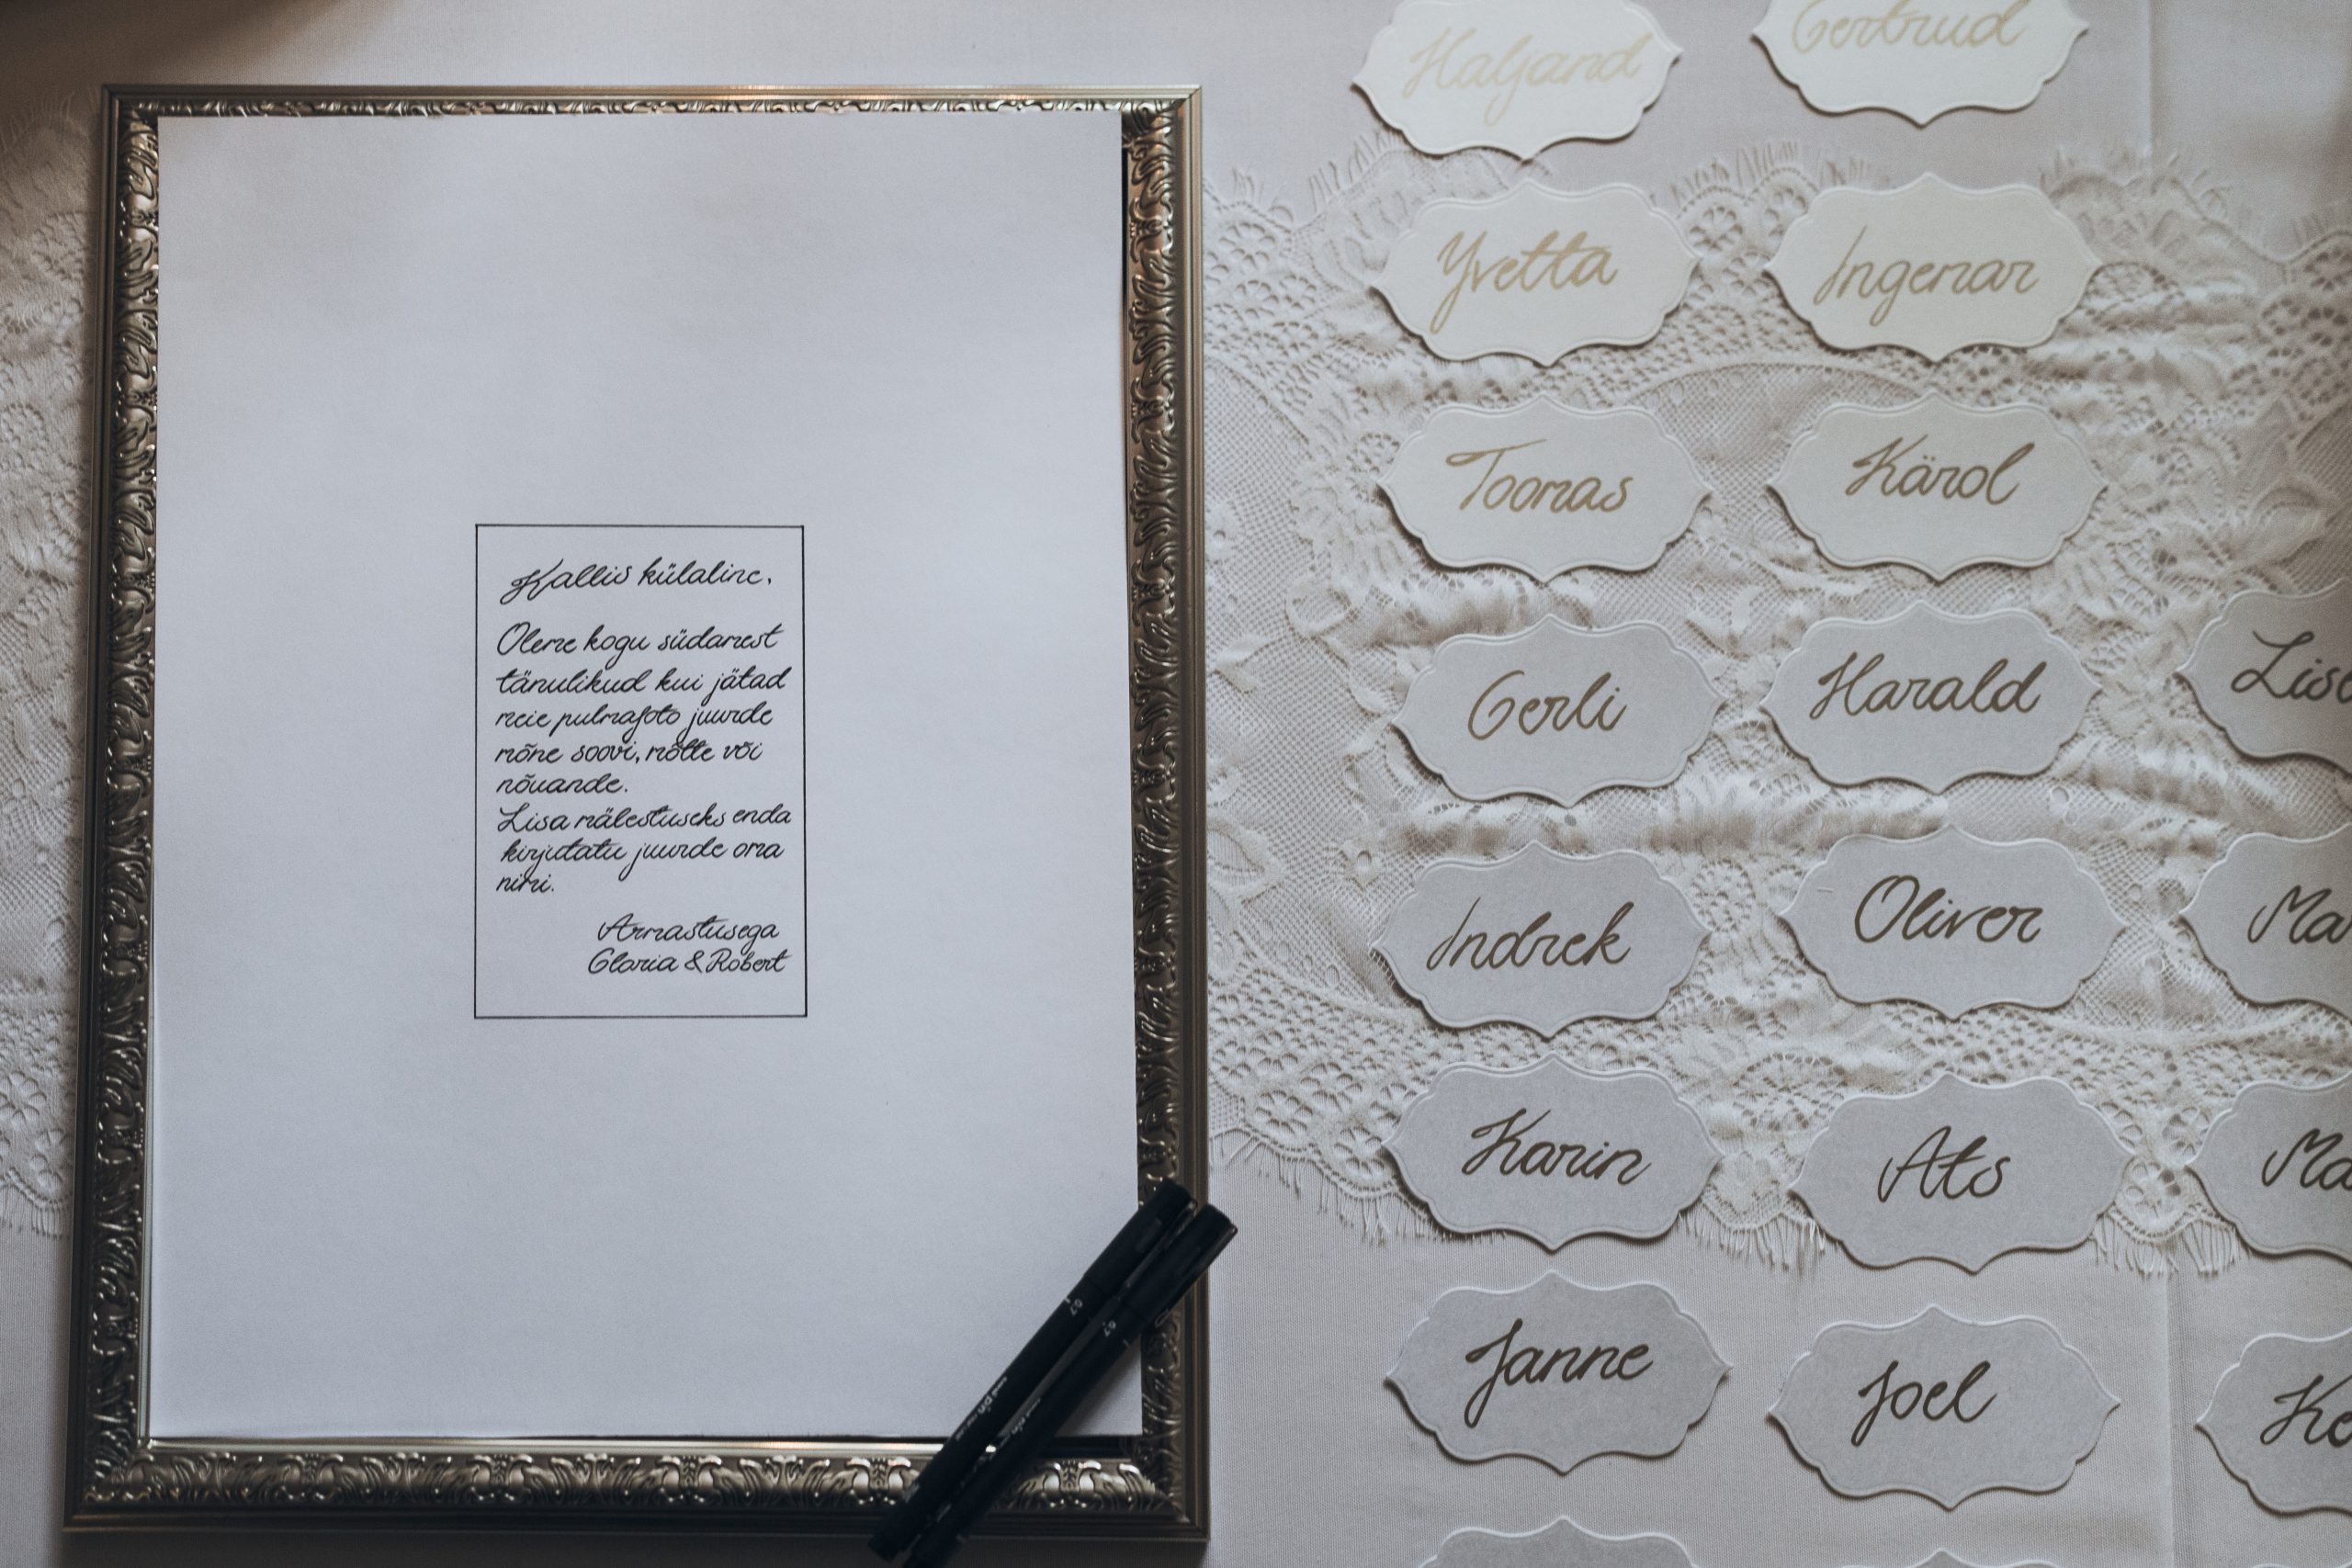 Kallis külaline,
Oleme kogu südamest
tänulikud kui jätad
meie pulmafoto juurde
mõne soovi, mõtte või
nõuande.
Lisa mälestuseks enda
kirjutatu juurde oma
nimi.
Armastusega
Gloria & Robert
0.7
0.7
uni pin
Haljand
Gertrud
Yvetta
Ingemar
Toomas
Kärol
Gerli
Harald
Lis
Indrek
Oliver
Ma
Karin
Ats
Ma
Janne
Joel